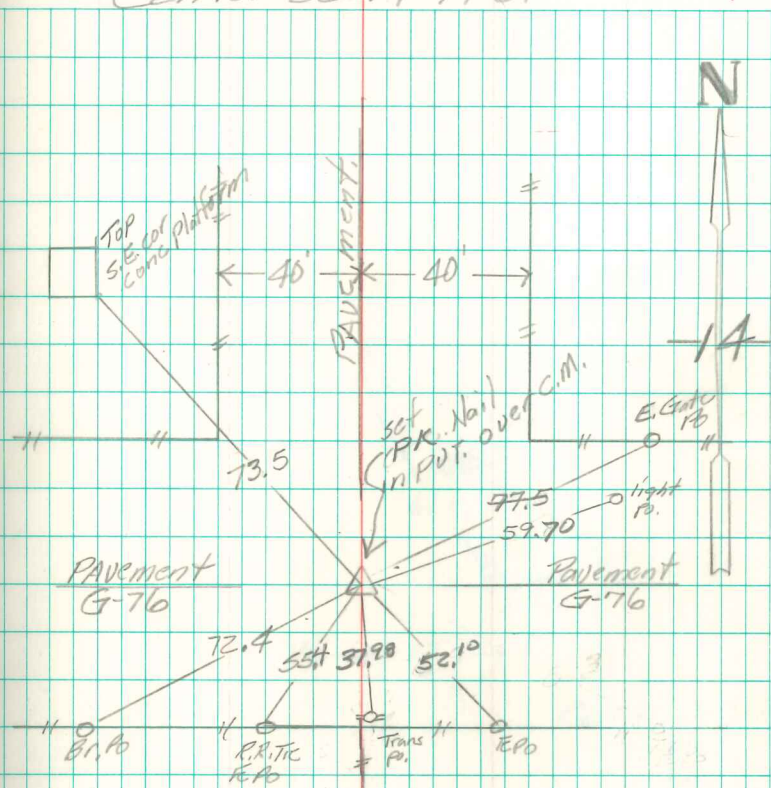 N
TOP
S.E. cor
conc platform
40'
40'
PAVEment.
14
set
PK. Nail
in PVT. over C.M.
E. Gate
Po
73.5
77.5
light
Po.
59.70
PAvement
G-76
Pavement
G-76
72.4
55.4
37.98
52.10
Br. Po
R.R. Tie
FC Po
Trans
Po.
FC Po